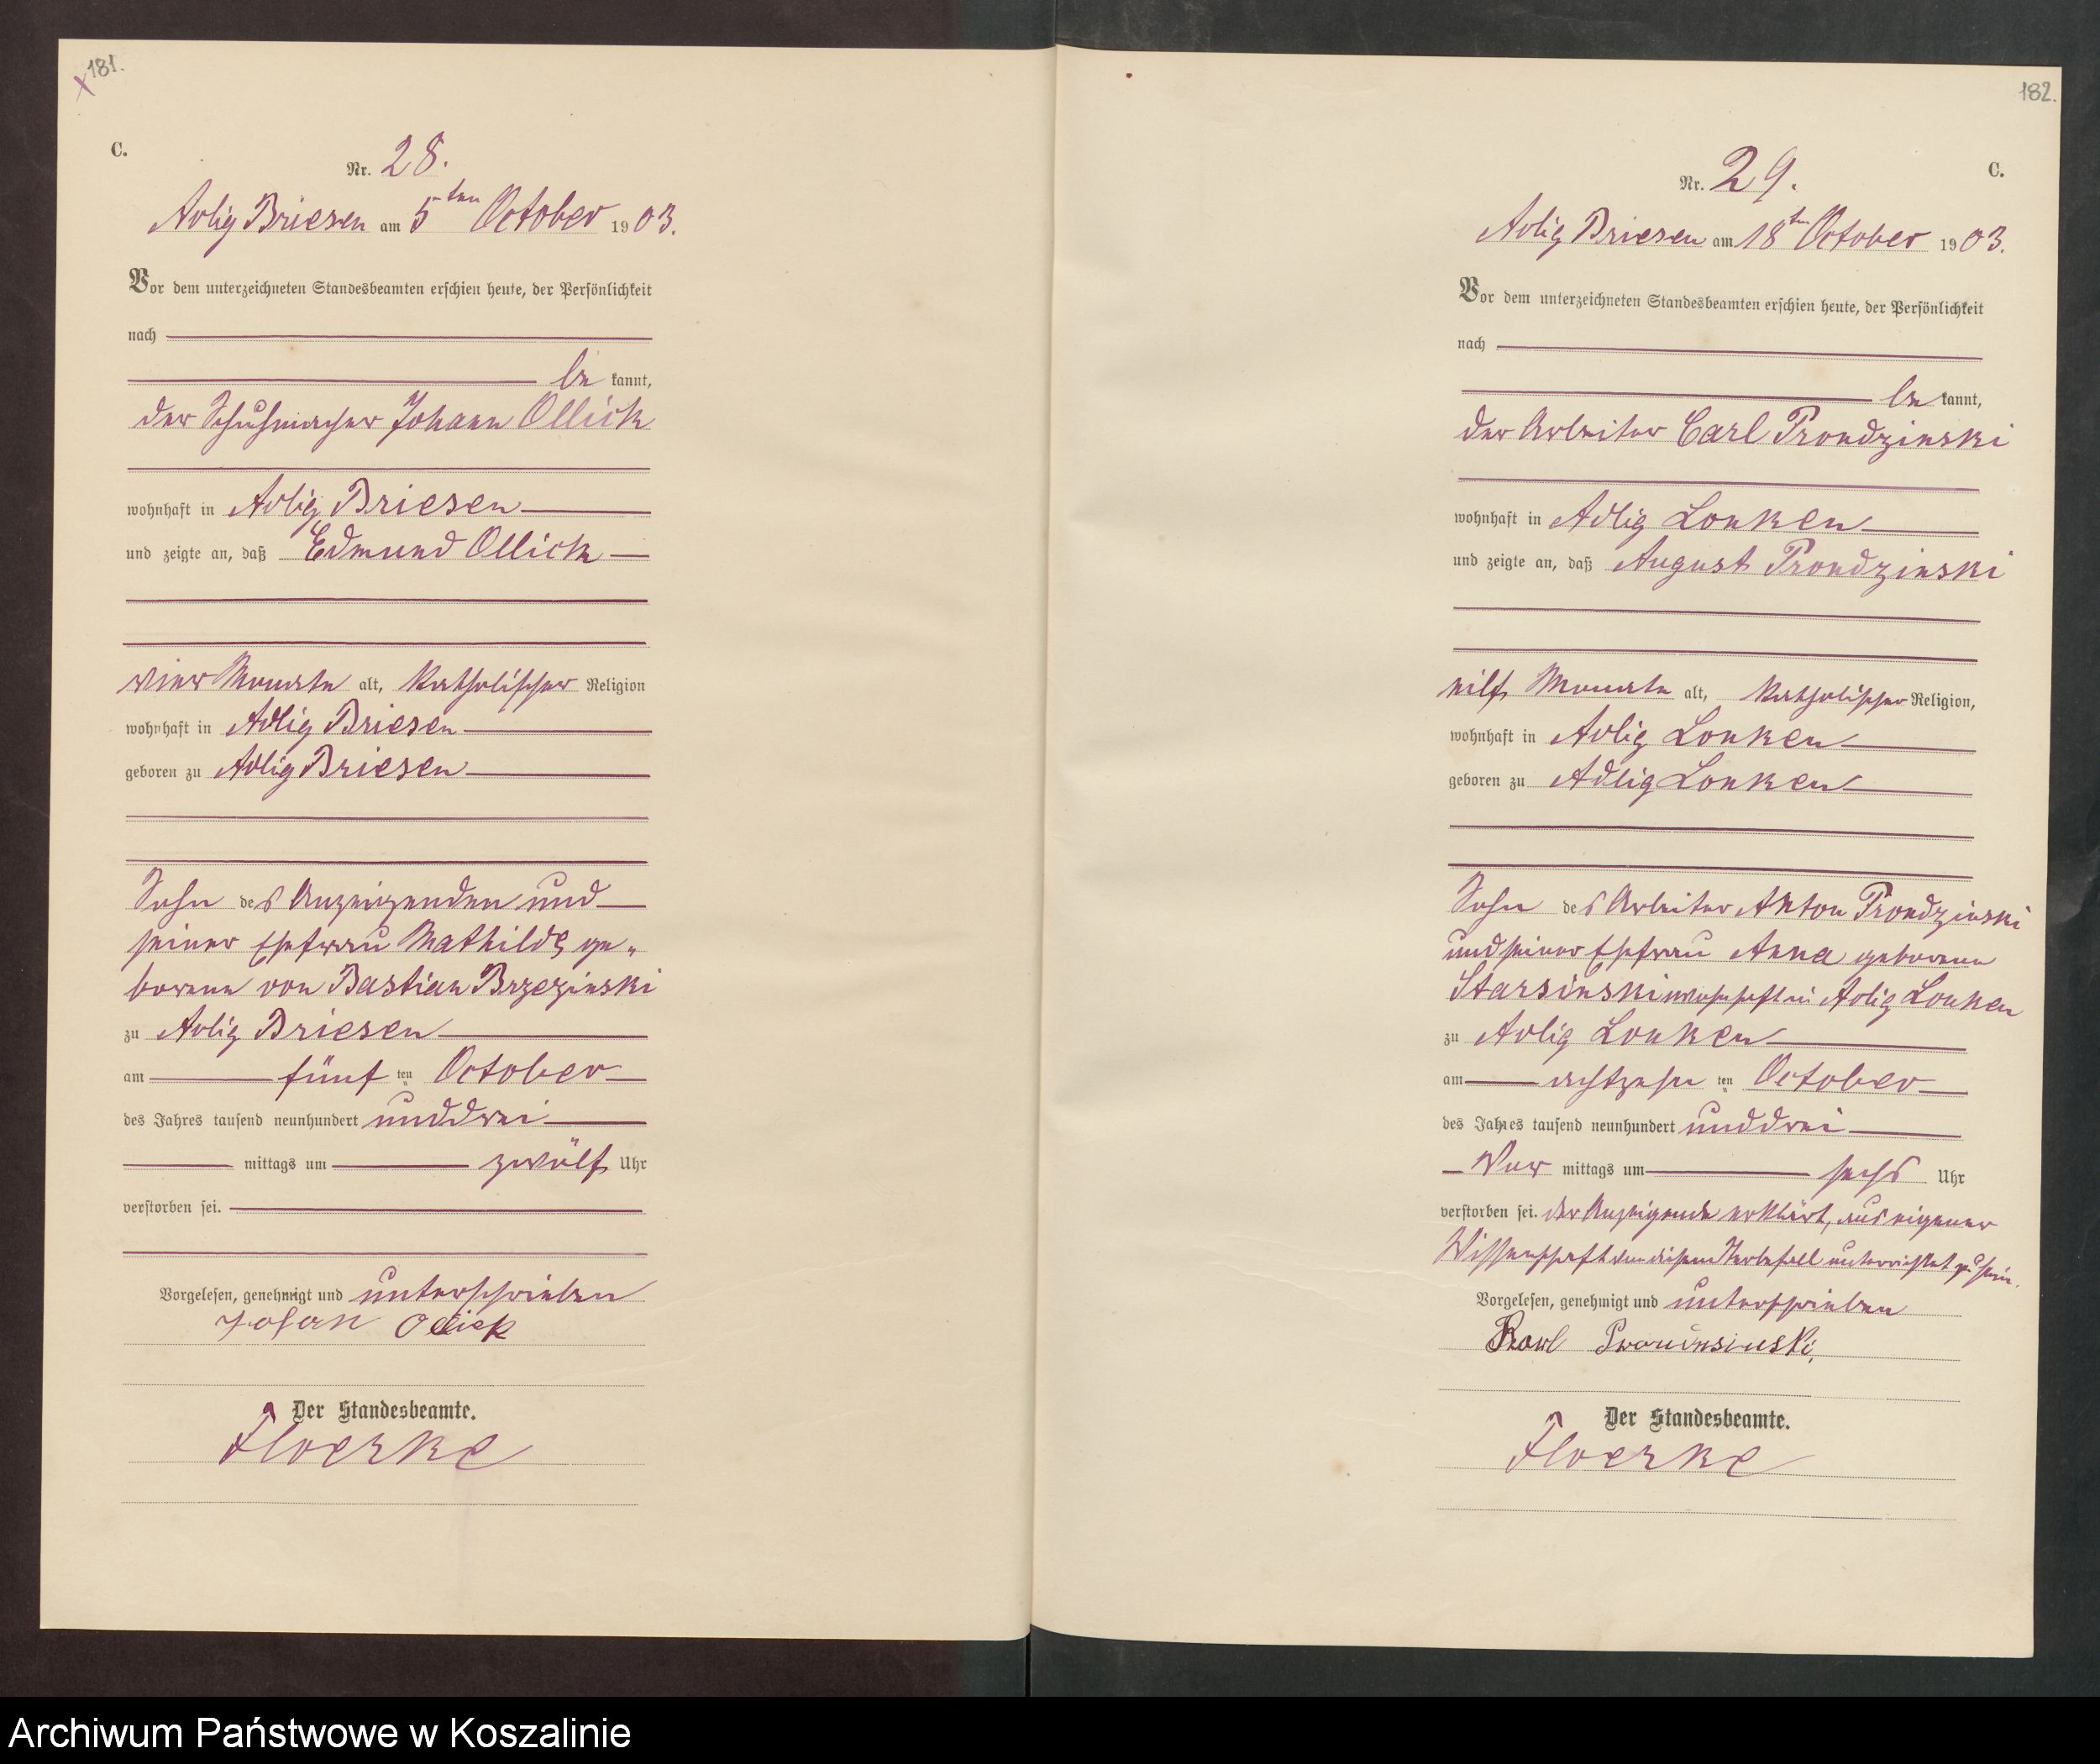 181.
C.
Nr. 28.
Adlig Briesen am 5ten October 1903.
Vor dem unterzeichneten Standesbeamten erschien heute, der Persönlichkeit
nach
be kannt,
der Schuhmacher Johann Ollick
wohnhaft in Adlig Briesen
und zeigte an, daß Edmund Ollick
vier Monate alt, katholischer Religion
wohnhaft in Adlig Briesen
geboren zu Adlig Briesen
Sohn des Anzeigenden und
seiner Ehefrau Mathilde, ge„
borene von Bastian Brzezinski
zu Adlig Briesen
am fünf ten October
des Jahres tausend neunhundert unddrei
mittags um zwölf Uhr
verstorben sei.
Vorgelesen, genehmigt und unterschrieben
Johan Ollick
Der Standesbeamte.
Floerke
182.
C.
Nr. 29.
Adlig Briesen am 18ten October 1903.
Vor dem unterzeichneten Standesbeamten erschien heute, der Persönlichkeit
nach
be kannt,
der Arbeiter Carl Prondzinski
wohnhaft in Adlig Lonken
und zeigte an, daß August Prondzinski
eilf Monate alt, katholischer Religion,
wohnhaft in Adlig Lonken
geboren zu Adlig Lonken
Sohn des Arbeiter Anton Prondzinski
und seiner Ehefrau Anna geborene
Starsinski wohnhaft in Adlig Lonken
zu Adlig Lonken
am achtzehn ten October
des Jahres tausend neunhundert unddrei
Vor mittags um sechs Uhr
verstorben sei. der Anzeigende erklärt, aus eigener
Wissenschaft von diesem Sterbefall unterrichtet zu sein.
Vorgelesen, genehmigt und unterschrieben
Karl Prondsinski
Der Standesbeamte.
Floerke
Archiwum Państwowe w Koszalinie